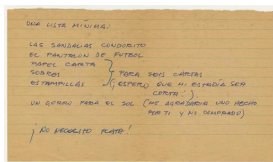 UNA LISTA MÍNIMA:
LAS SANDALIAS CONDORITO
EL PANTALON DE FUTBOL
PAPEL CARTA
SOBRES
ESTAMPILLAS
PARA DOS CARTAS
(¡ESPERO QUE MI ESTADÍA SEA CORTA!)
UN GORRO PARA EL SOL (ME AGRADARIA UNO HECHO
POR TI Y NO COMPRADO)
¡NO NECESITO PLATA!